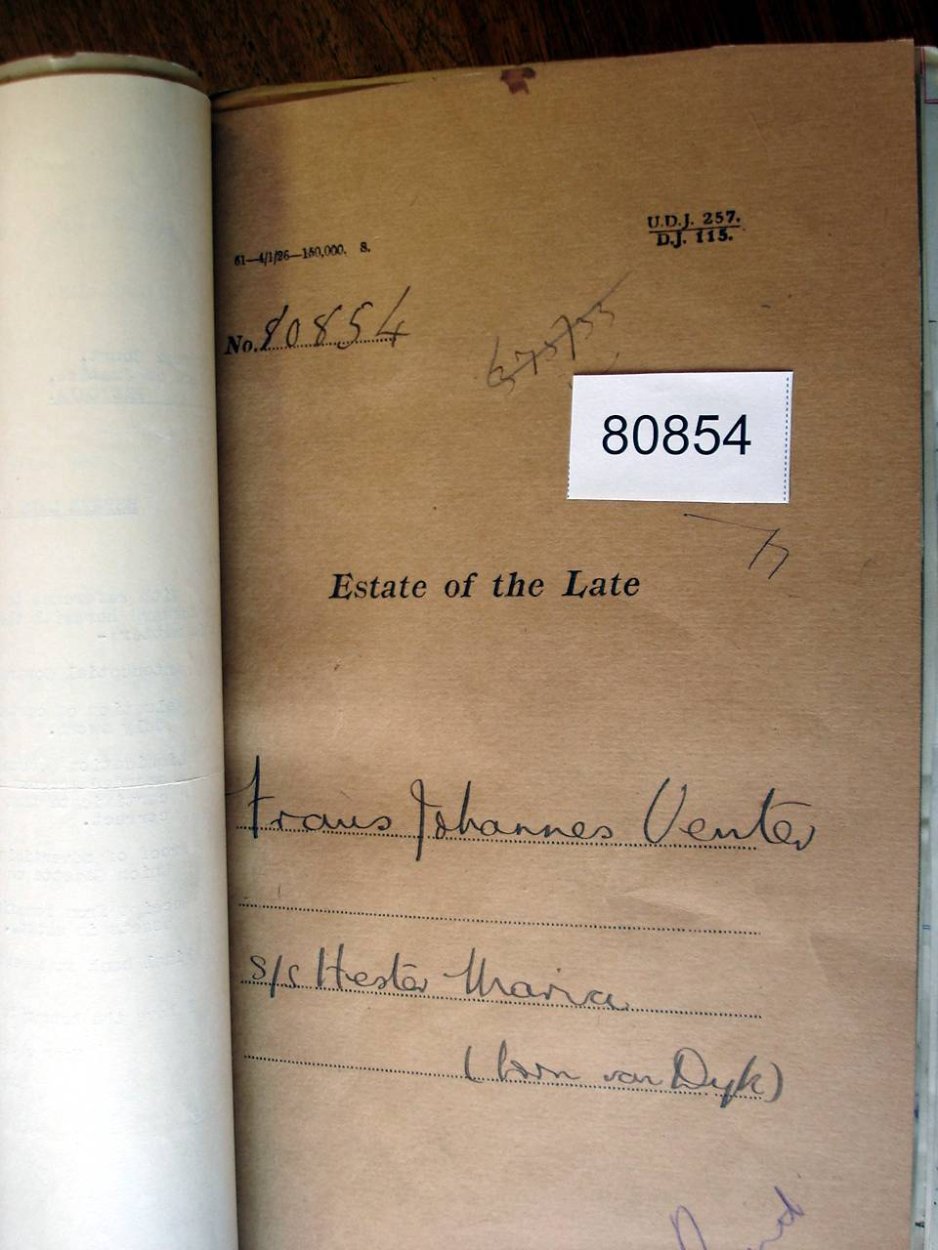 U.D.J. 257.
D.J. 115.
61—4/1/26—150,000. S.
No. 80854
80854
Estate of the Late
Frans Johannes Venter
s/s Hester Maria
(born van Dyk)